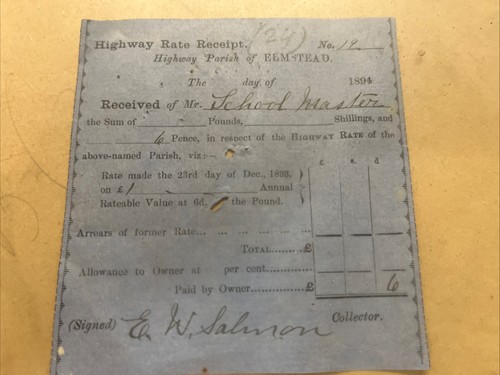 (24)
Highway Rate Receipt. No. 19
Highway Parish of ELMSTEAD.
The day of 1894
Received of Mr. School Master
the Sum of Pounds, Shillings, and
6 Pence, in respect of the HIGHWAY RATE of the
above-named Parish, viz:—
£ s. d
Rate made the 23rd day of Dec., 1893,
on £1 Annual
Rateable Value at 6d. the Pound.
Arrears of former Rate... ... ... ... ...
TOTAL.........£
Allowance to Owner at per cent......
Paid by Owner...............£ 6
(Signed) E. W. Salmon Collector.